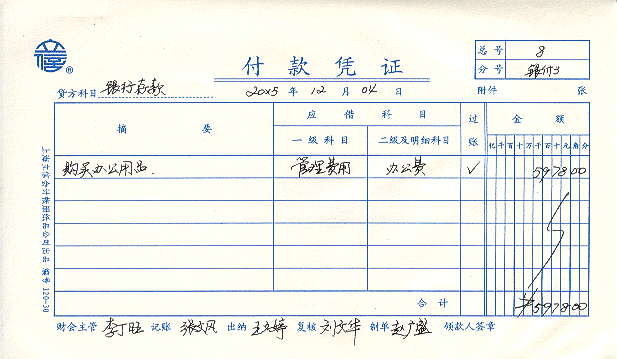 付款凭证
总号 8
分号 银付3
贷方科目 银行存款 20×5 年 12 月 04 日 附件 张
摘要 应借科目 过账 金额
一级科目 二级及明细科目 亿千百十万千百十元角分
购买办公用品. 管理费用 办公费 √ 597800
合计 ¥597800
财会主管 李丁旺 记账 张文风 出纳 王文婷 复核 刘文华 制单 赵广盛 领款人签章